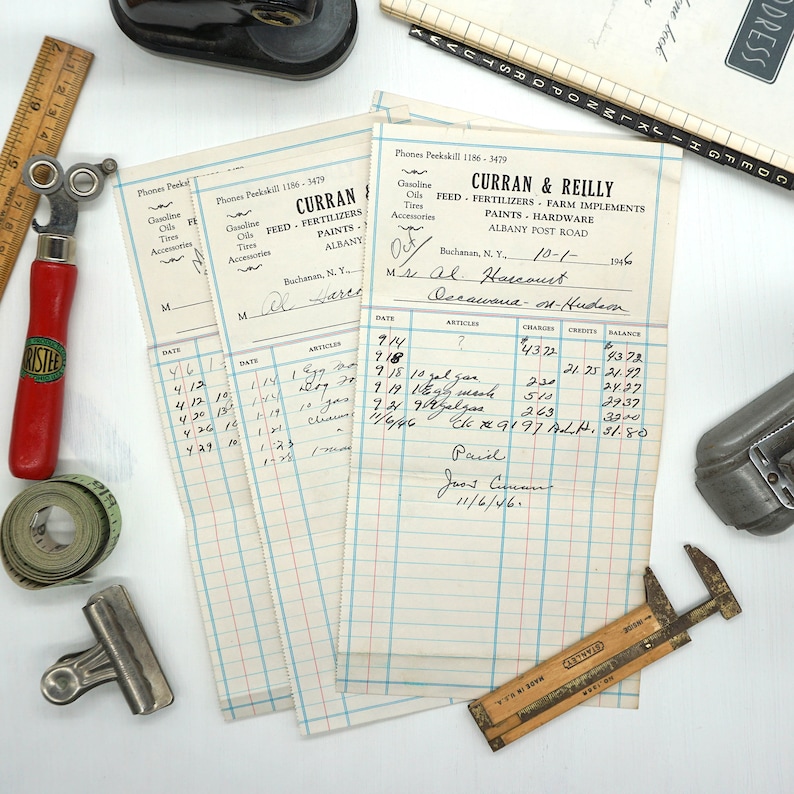 ADDRESS
Z Y X W V U T S R Q P O N M L K J I H G F E D C
Phones Peekskill 1186 - 3479
Gasoline
Oils
Tires
Accessories
CURRAN & REILLY
FEED · FERTILIZERS · FARM IMPLEMENTS
PAINTS · HARDWARE
ALBANY POST ROAD
Oct/
Buchanan, N. Y., 10-1- 1946
Mr. Al. Harcourt
Oscawana-on-Hudson
DATE ARTICLES CHARGES CREDITS BALANCE
9 14 ? $43 72 $43 72
9 18 21.75 21.97
9 18 10 gal gas 2 30 24.27
9 19 1 Egg mash 5 10 29 37
9 21 9 gal gas 2 63 32 00
11/6/46 ck # 9197 31.80
Paid
Jas Curran
11/6/46.
Phones Peekskill 1186 - 3479
Gasoline
Oils
Tires
Accessories
CURRAN &
FEED · FERTILIZERS
PAINTS ·
ALBANY
Buchanan, N. Y.,
M Al Harco
DATE ARTICLES
1-14 1 Egg
1-14
1-19 10 gas
1-21
1-23
1-28 1
Phones Peekskill
Gasoline
Oils
Tires
Accessories
M
DATE
4 6
4 12
4 12 10
4 20 13
4 26 10
4 29 10
RISTEE
INSIDE
STANLEY
MADE IN U.S.A.